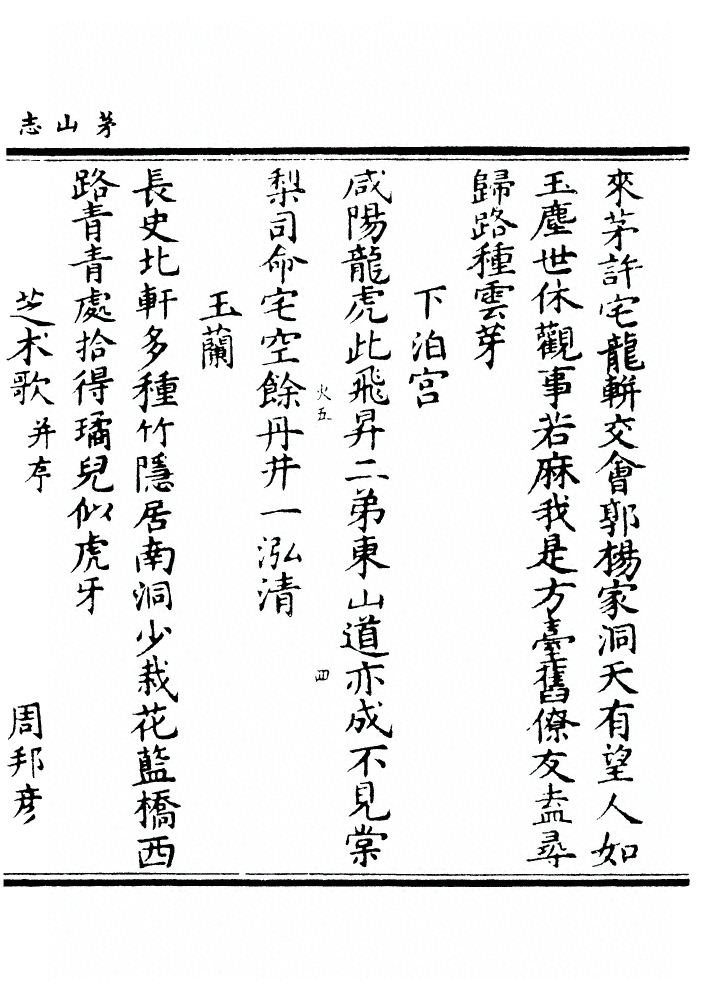 茅山志
來茅許宅龍軿交會郭楊家洞天有望人如
玉塵世休觀事若麻我是方臺舊僚友盍尋
歸路種雲芽
下泊宮
咸陽龍虎此飛昇二弟東山道亦成不見棠
火五
四
梨司命宅空餘丹井一泓清
玉蘭
長史北軒多種竹隱居南洞少栽花藍橋西
路青青處拾得璚兒似虎牙
芝术歌并序 周邦彦